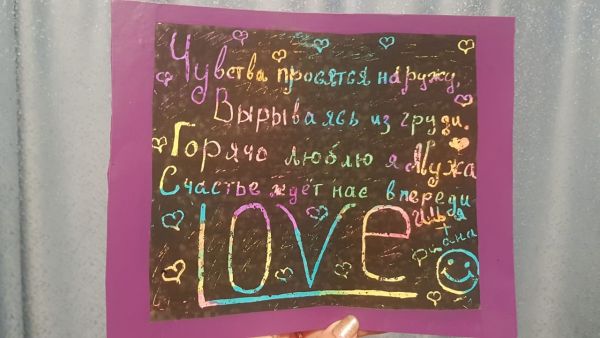 Чувства просятся наружу,
Вырываясь из груди.
Горячо люблю я Мужа
Счастье ждёт нас впереди
Илья
+
LOVE